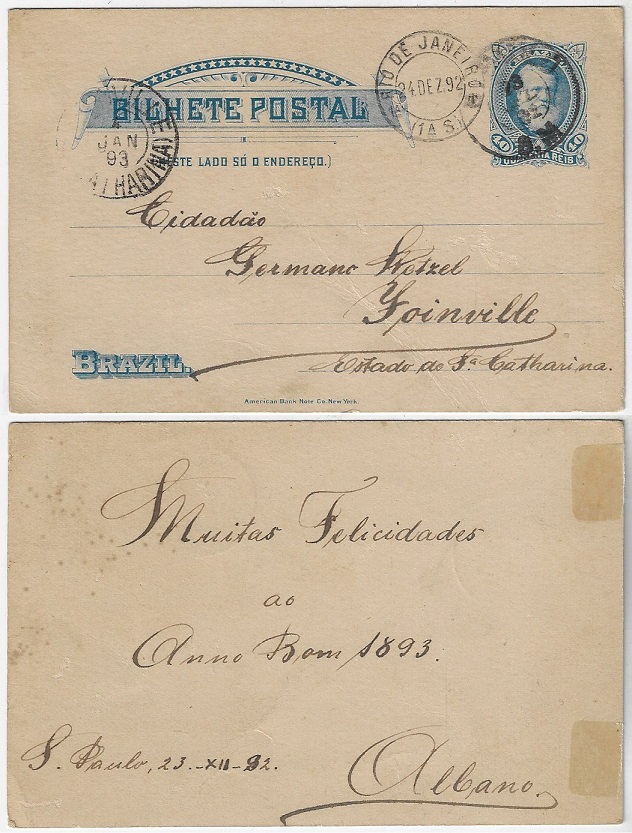 BILHETE POSTAL
(NESTE LADO SÓ O ENDEREÇO.)
RIO DE JANEIRO
24 DEZ 92
JAN
93
BRAZIL
40 40
REIS
Cidadão
Germano Wetzel
Joinville
Estado de Sª Catharina.
BRAZIL.
American Bank Note Co. New York.
Muitas Felicidades
ao
Anno Bom 1893.
S. Paulo, 23.-XII-92.
Albano.